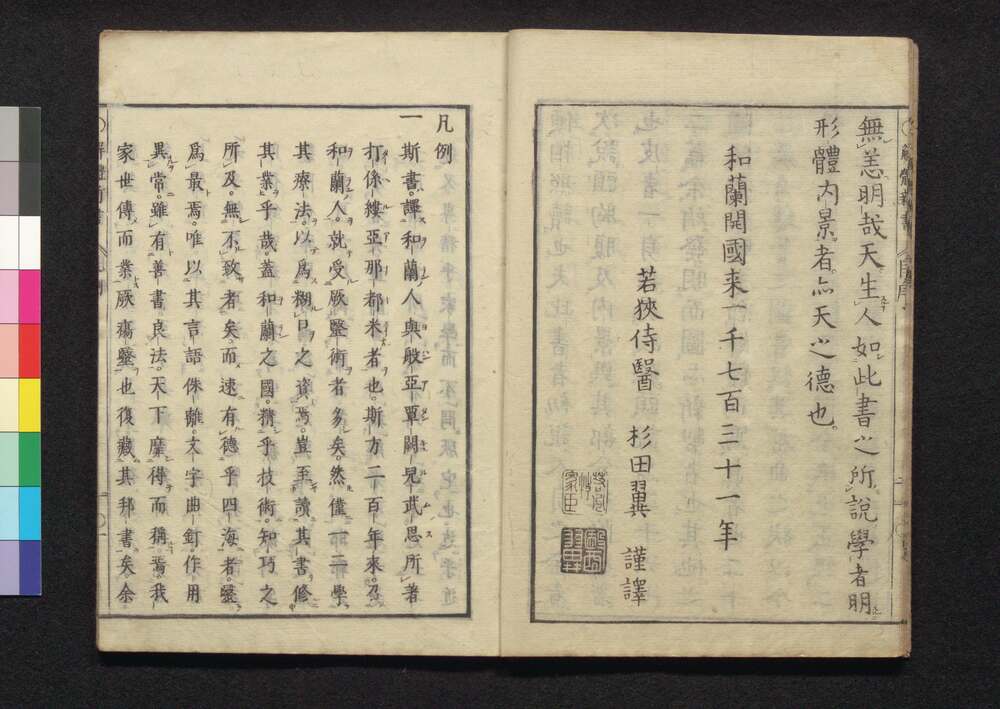 無恙明哉天生人如此書之所説學者明
形體内景者亦天之德也
和蘭開國来一千七百三十一年
若狹侍醫 杉田翼 謹譯
凡例
一斯書譯和蘭人與般亞單闕兒武思所著
打係縷亞那都米者也斯方二百年来
和蘭人就受厥毉術者多矣然僅一二學
其療法以為糊口之資焉豈至讀其書修
其業乎哉蓋和蘭之國精乎技術知巧之
所及無不致者矣而速有德乎四海者毉
為最焉唯以其言語侏離文字曲釘作用
異常雖有善書良法天下靡得而稱焉我
家世傳而業厥瘍毉也復藏其邦書矣余